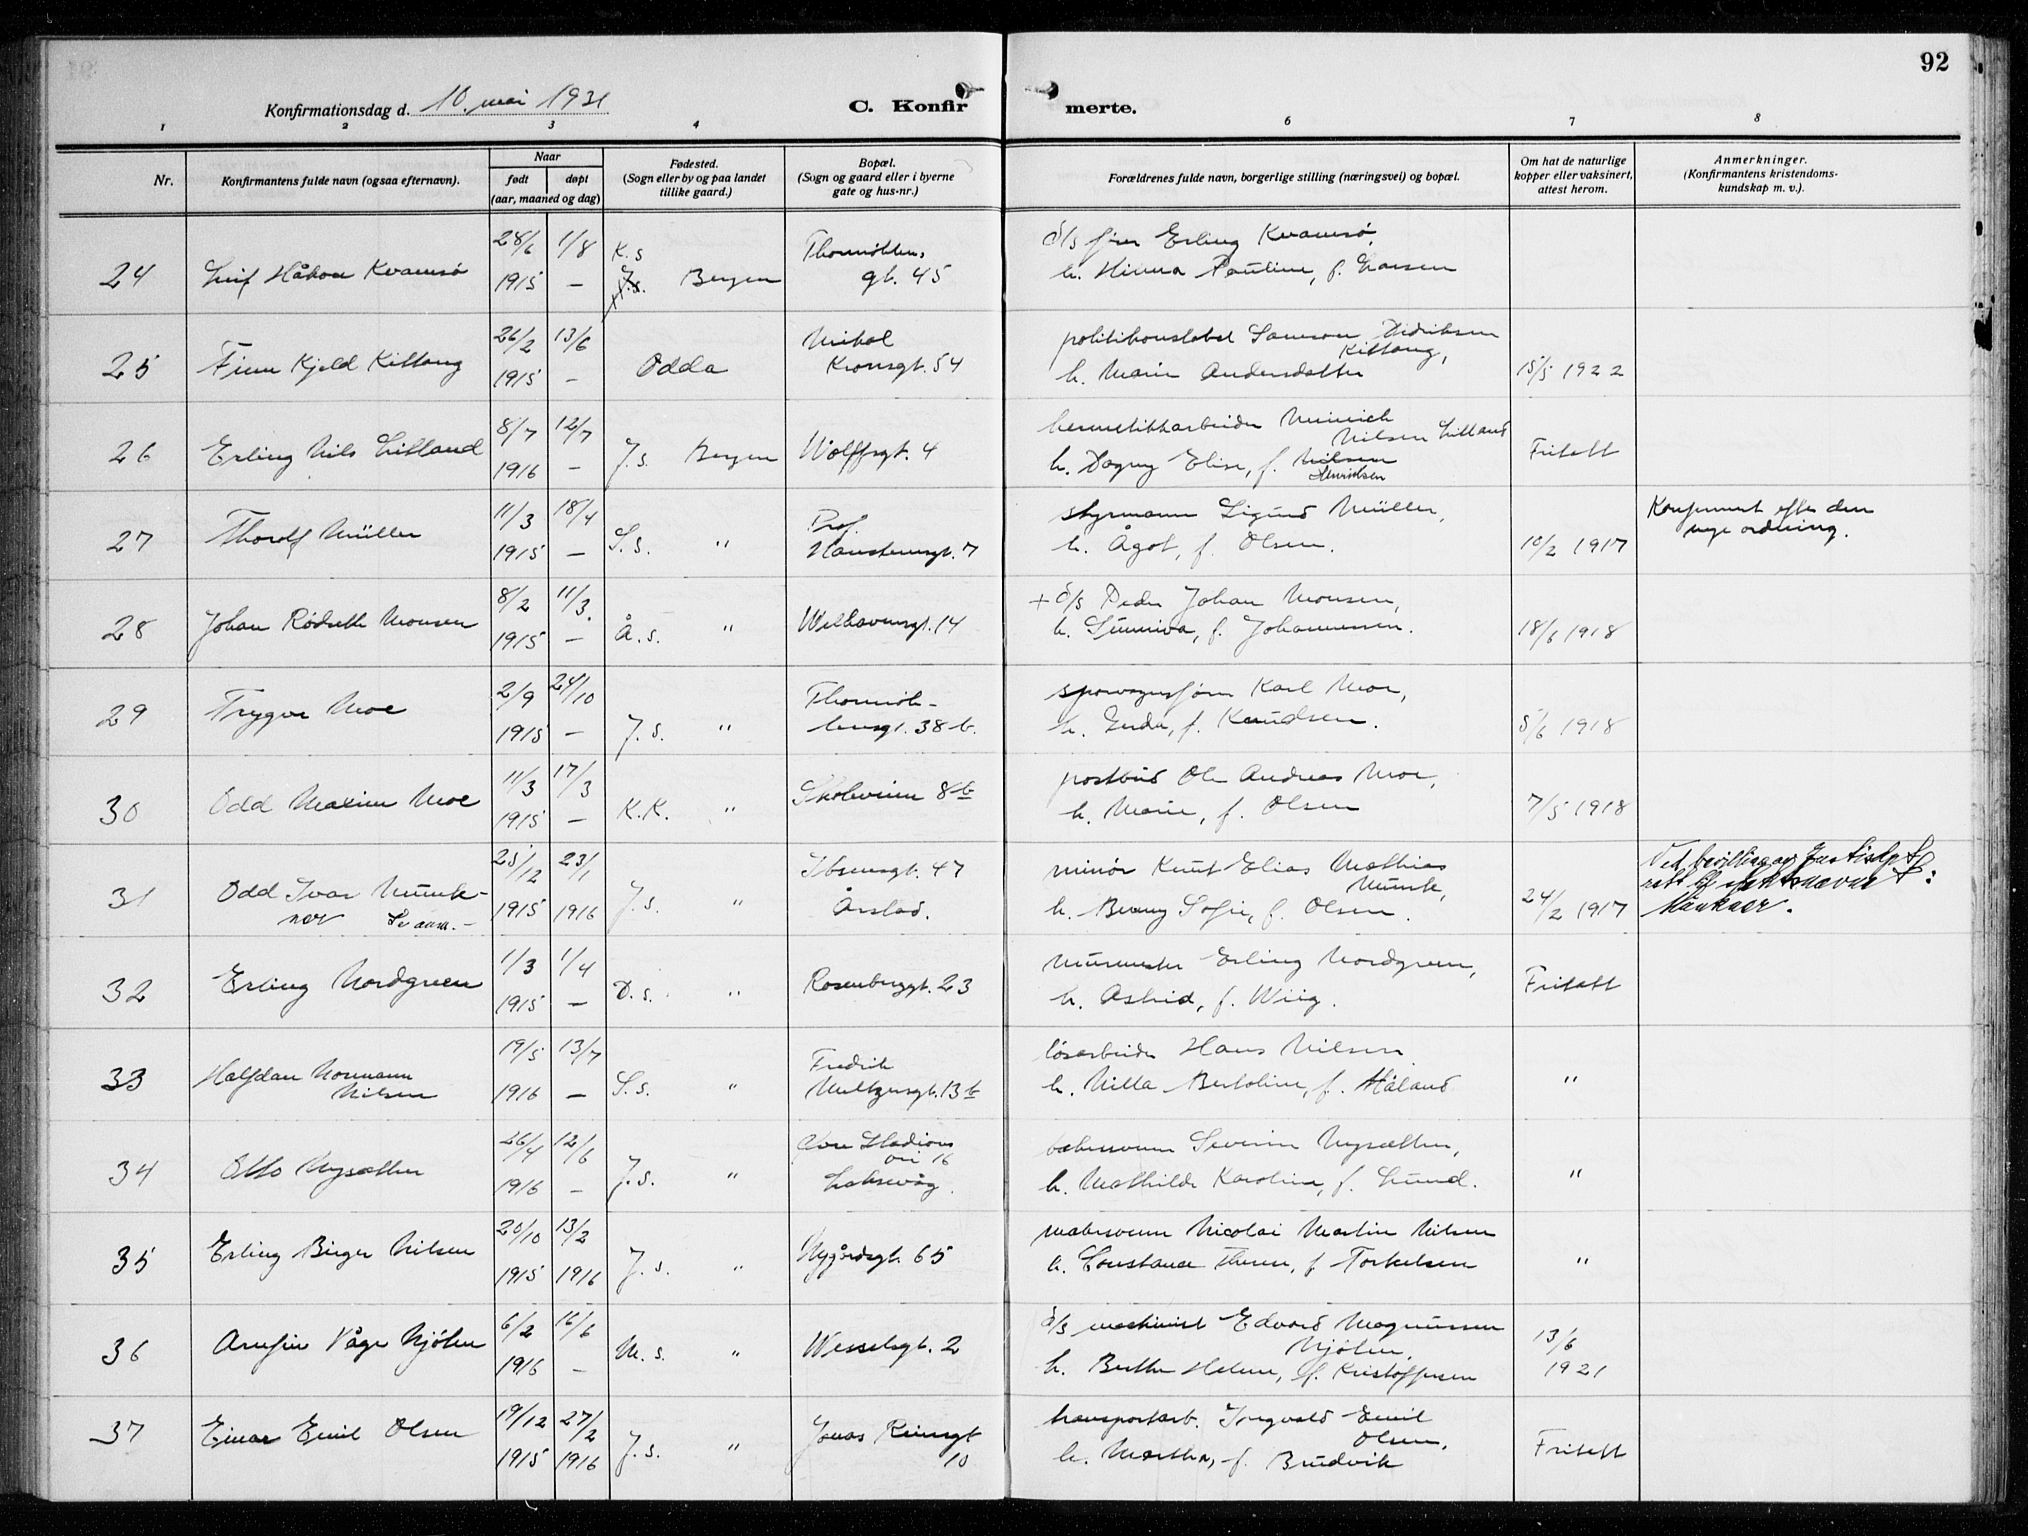 92
Konfirmationsdag d. 10. mai 1931
C. Konfirmerte.
1 2 3 4 6 7 8
Nr.
Konfirmantens fulde navn (ogsaa efternavn).
Naar
født døpt
(aar, maaned og dag)
Fødested.
(Sogn eller by og paa landet
tillike gaard.)
Bopæl.
(Sogn og gaard eller i byerne
gate og hus-nr.)
Forældrenes fulde navn, borgerlige stilling (næringsvei) og bopæl.
Om hat de naturlige
kopper eller vaksinert,
attest herom.
Anmerkninger.
(Konfirmantens kristendoms-
kundskap m. v.).
24 Leif Håkon Kvamsø 28/6 1915 1/8 — K.s J.s. Bergen gt. 45
d/s fører Erling Kvamsø,
h. Minna Pauline, f. Larsen
25 Finn Kjeld Kittang 26/2 1915 13/6 — Odda Mikal
Kronsgt. 54
politikonstabel Samson Didriksen
Kittang,
h. Marie Andersdatter 15/5 1922
26 Erling Nils Litland 8/7 1916 12/7 — J.s. Bergen Wolffsgt. 4
hermetikkarbeider Minrich
Nilsen Litland
h. Dagny Elise, f. Nilsen
Henriksen Fritatt
27 Thorolf Müller 11/3 1915 18/4 — S.s. " Prof.
Hansteensgt. 7
styrmann Sigurd Müller,
h. Ågot, f. Olsen. 10/2 1917
Konfirmert efter den
nye ordning.
28 Johan Rødseth Monsen 8/2 1915 11/3 — Å.s. " Welhavensgt. 14
+ d/s Peder Johan Monsen,
h. Sunniva, f. Johannessen. 18/6 1918
29 Trygve Moe 2/9 1915 24/10 — J.s. " Thormøh-
lensgt. 38 b.
sporvognsfører Karl Moe,
h. Enda, f. Knudsen. 5/6 1918
30 Odd Maxim Moe 11/3 1915 17/3 — K.K. " Skoleveien 8 b
postbud Ole Andreas Moe,
h. Marie, f. Olsen 7/5 1918
31 Odd Ivar Munk-
ner Se anm. — 25/12 1915 23/1 1916 J.s. " Ibsensgt. 47
Årstad.
minør Knut Elias Mathias
Munke,
h. Benny Sofie, f. Olsen. 24/2 1917
Ved bevilling av Justisdpt
rett til slektsnavnet:
Munkner.
32 Erling Nordgreen 1/3 1915 1/4 — D.s. " Rosenbergsgt. 23
murmester Erling Nordgreen,
h. Astrid, f. Wiig. Fritatt
33 Halfdan Normann
Nilsen 19/5 1916 13/7 — S.s. " Fredrik
Meltzersgt. 13 b
løsarbeider Hans Nilsen
h. Milla Bertoline, f. Håland "
34 Otto Nysæther 26/4 1916 12/6 — J.s. " Stadions
vei 16
Laksevåg.
bøkersvenn Severin Nysæther,
h. Mathilde Karoline, f. Lund. "
35 Erling Birger Nilsen 20/10 1915 13/2 1916 J.s. " Nygårdsgt. 65
malersvenn Nicolai Martin Nilsen
h. Constance f. Torkelsen "
36 Arnfin Våge Njøten 6/2 1916 16/6 — M.s. " Wesselsgt. 2
d/s maskinist Edvard Magnussen
Njøten,
h. Berthe Helene, f. Kristoffersen 13/6
1921
37 Einar Emil Olsen 19/12 1915 27/2 1916 J.s. " Jonas Reinsgt
10
transportarb. Ingvald Emil
Olsen,
h. Martha, f. Brudvik Fritatt